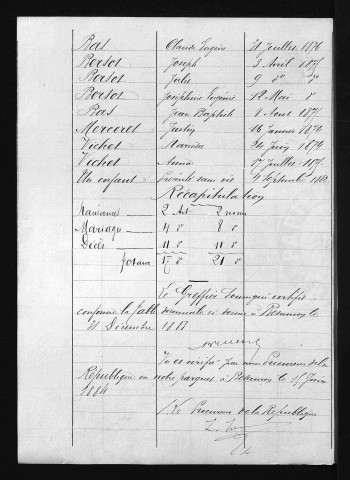 Bas Claude Eugène 31 Juillet 1876
Bersot Joseph 3 Avril 187
Bersot Julie 9 do do
Bersot Joséphine Eugénie 12 Mai d
Bas Jean Baptiste 1 Aout 187
Merceret Justin 16 Janvier 187
Vichet 24 Juin 187
Vichet Anna 17 Juillet 187
Un enfant présenté sans vie 4 Septembre 188
Récapitulation
Naissances 2 Act 2 noms
Mariages 4 d 8 d
Décès 11 d 11 d
Totaux 17 d 21 d
Le Greffier soussigné certifie
conforme la table décennale ci dessus à Besançon le
31 Décembre 188
Vu et vérifié par nous Procureur de la
République en notre parquet à Besançon le Juin
1884
Le Procureur de la République